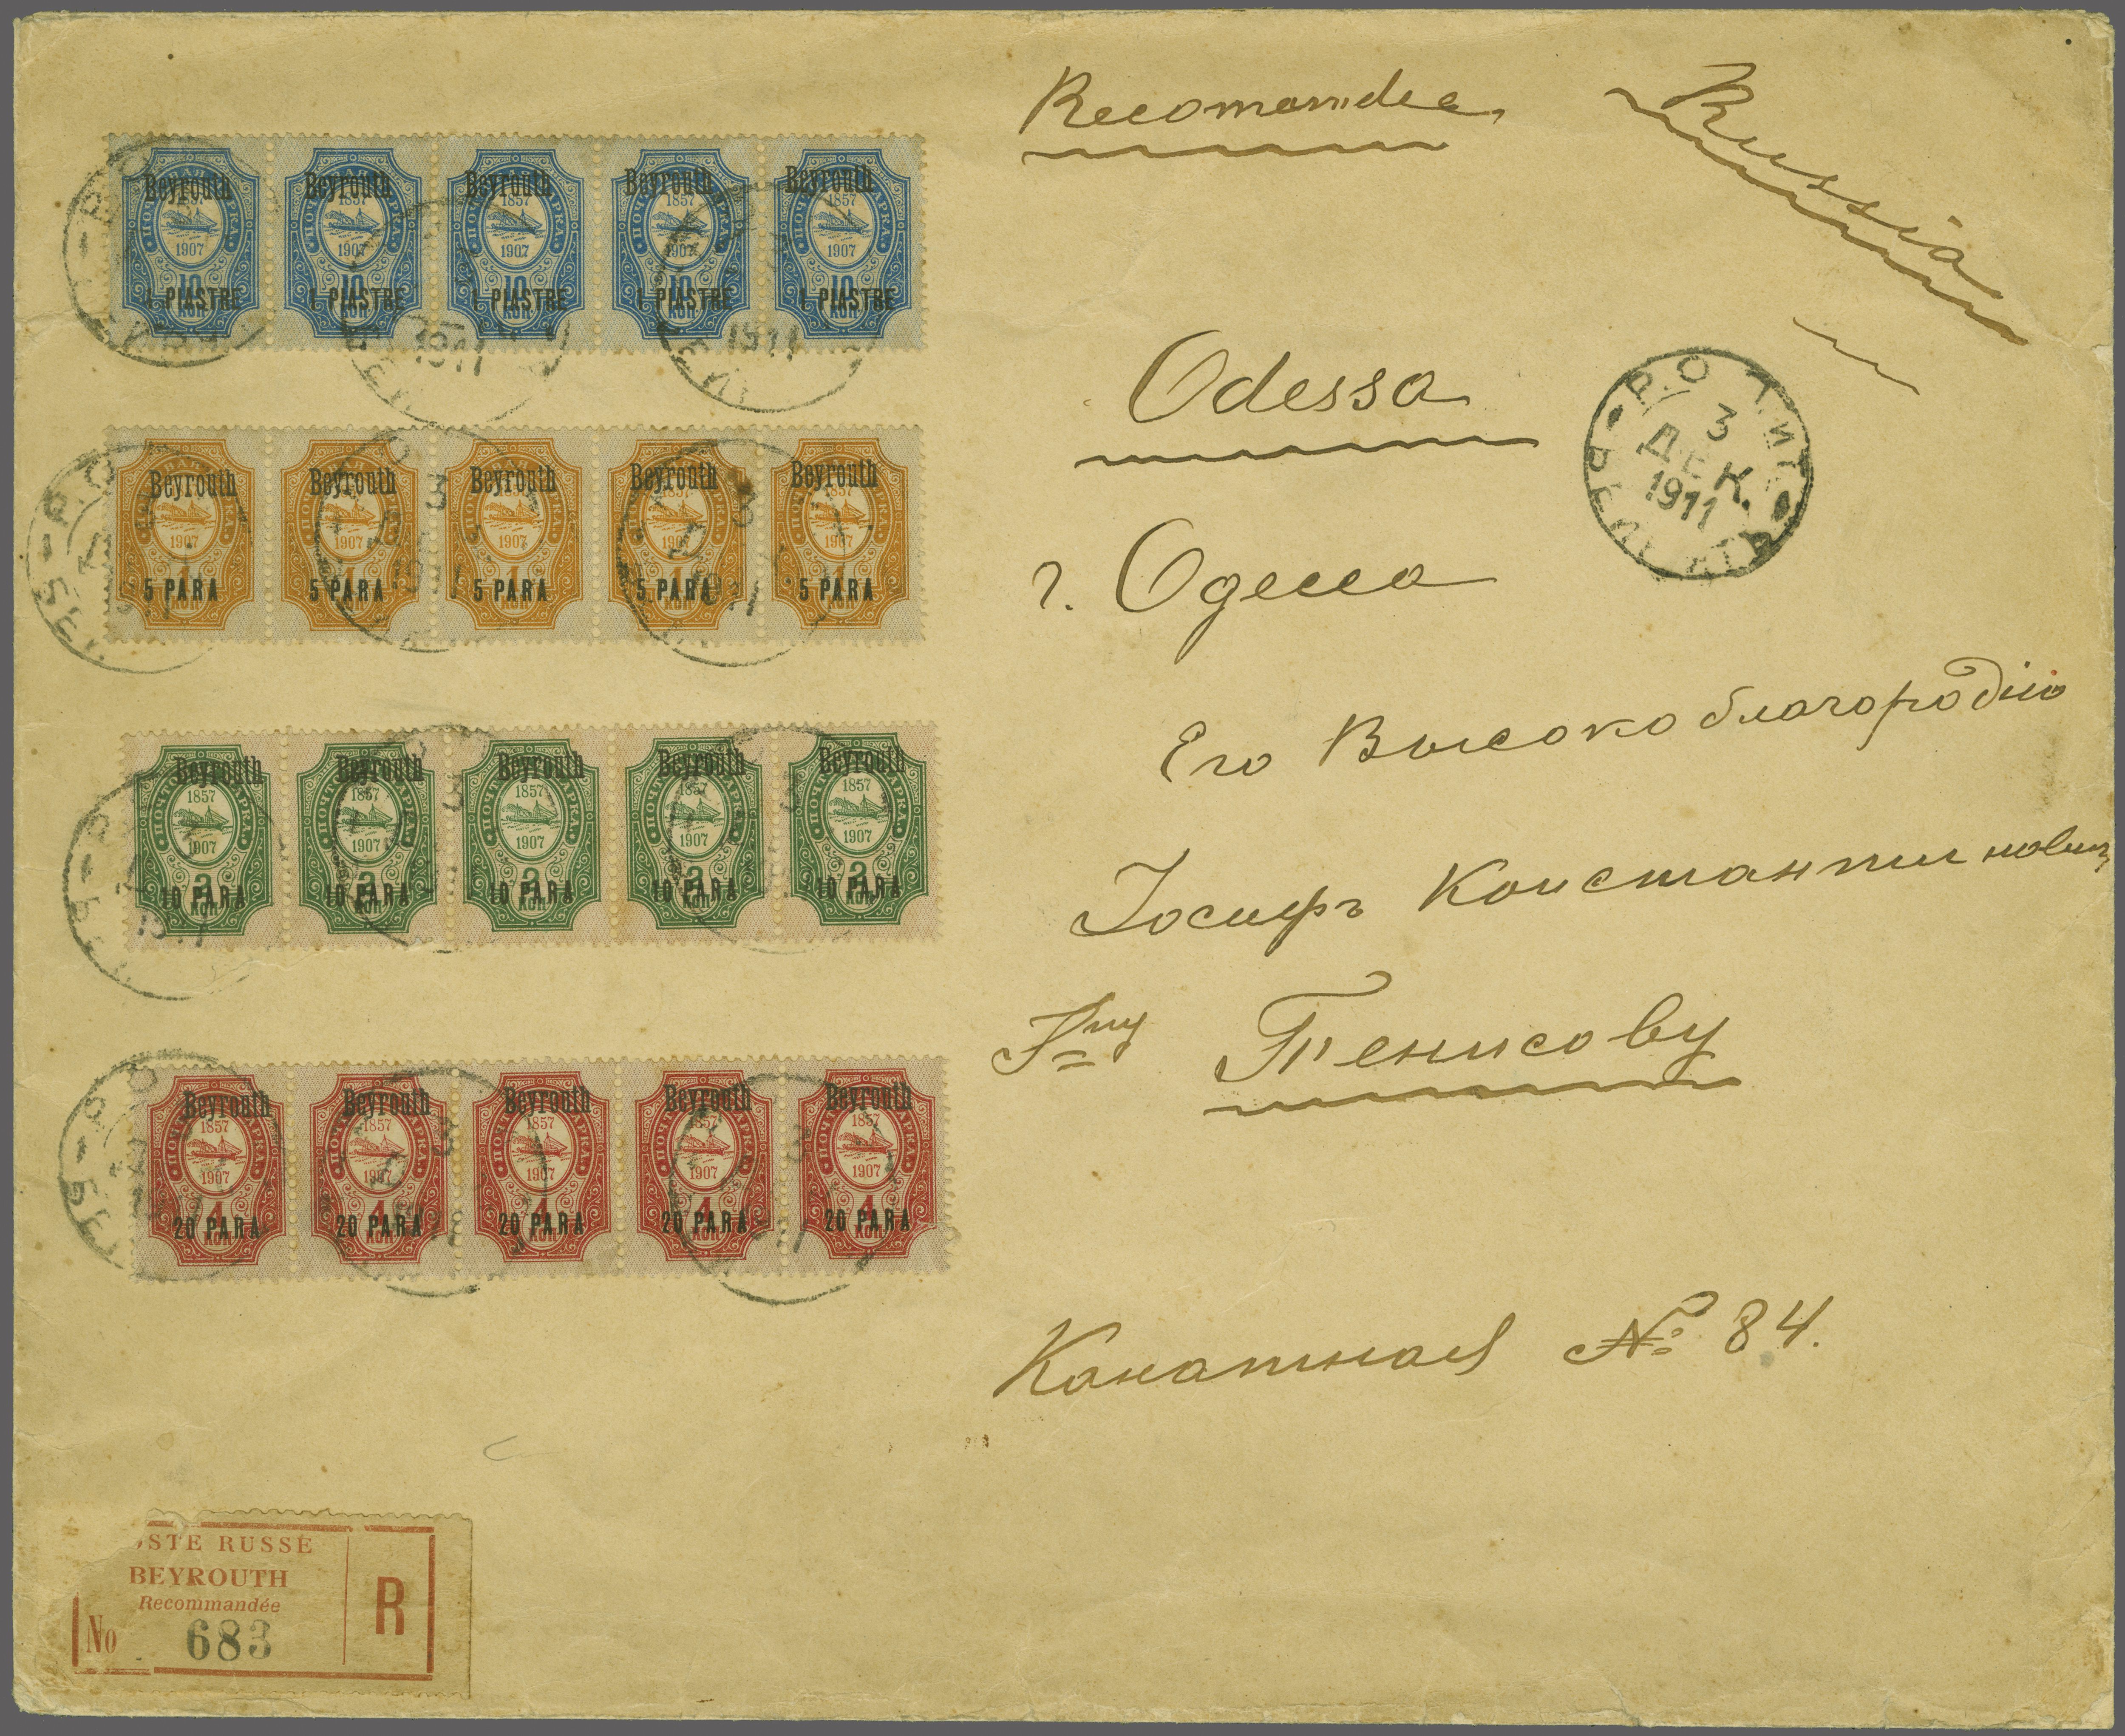 Recomandee
Russia
Odessa
г. Одесса
Его Высокоблагородію
Іосифъ Константиновичу
Г=ну Тенисову
Канатная № 84.
Beyrouth Beyrouth Beyrouth Beyrouth Beyrouth
1857 1857 1857 1857
1907 1907 1907 1907 1907
10 10 10 10 10
1 PIASTRE 1 PIASTRE 1 PIASTRE 1 PIASTRE 1 PIASTRE
КОП КОП КОП КОП КОП
1911 1911
Р.О.П.иТ.
3
ДЕК.
1911
БЕЙРУТА
Beyrouth Beyrouth Beyrouth Beyrouth Beyrouth
1907 1907 1907 1907 1907
5 PARA 5 PARA 5 PARA 5 PARA 5 PARA
КОП КОП КОП КОП КОП
Beyrouth Beyrouth Beyrouth Beyrouth Beyrouth
ПОЧТОВАЯ МАРКА
1857 1857 1857 1857 1857
1907 1907 1907 1907 1907
2 2 2 2 2
10 PARA 10 PARA 10 PARA 10 PARA 10 PARA
КОП КОП КОП КОП КОП
Beyrouth Beyrouth Beyrouth Beyrouth Beyrouth
1857 1857 1857 1857 1857
1907 1907 1907 1907 1907
4 4 4 4 4
20 PARA 20 PARA 20 PARA 20 PARA 20 PARA
КОП КОП КОП КОП КОП
STE RUSSE
BEYROUTH
Recommandée
No 683
R